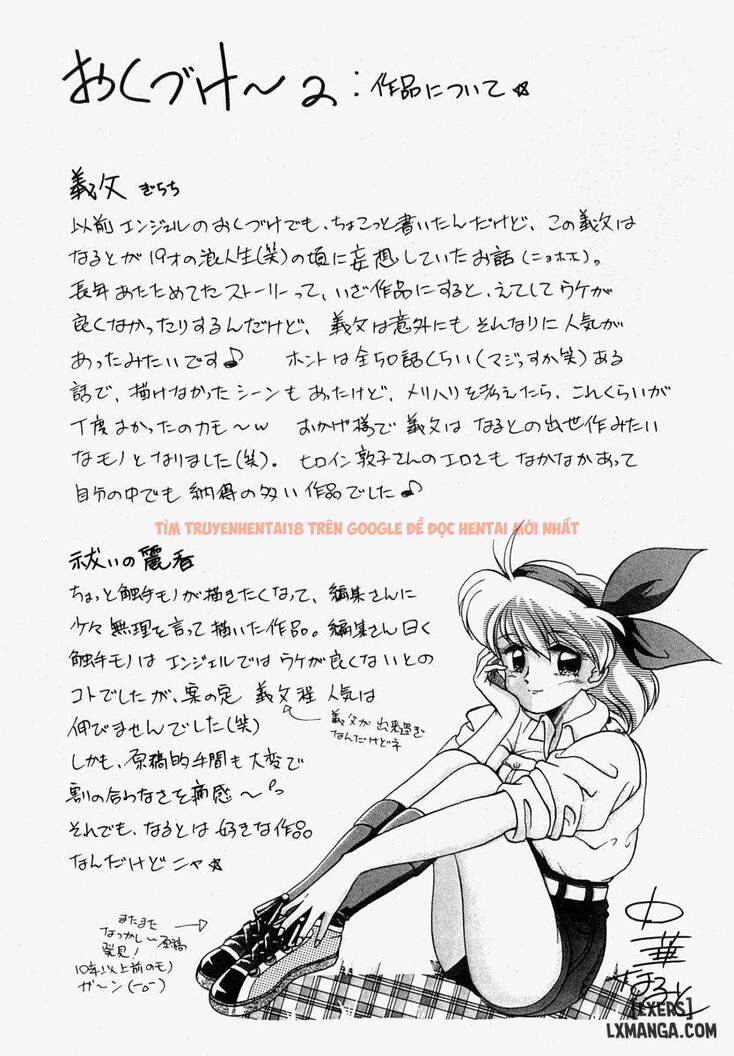 おくづけ〜2：作品について☆
義父 ぎちち
以前エンジェルのおくづけでも、ちょこっと書いたんだけど、この義父は
なるとが19才の浪人生(笑)の頃に妄想していたお話(ニョホホ)。
長年あたためてたストーリーって、いざ作品にすると、えてしてウケが
良くなかったりするんだけど、義父は意外にもそんなりに人気が
あったみたいです♪ ホントは全50話くらい(マジっすか笑)ある
話で、描けなかったシーンもあったけど、メリハリを考えたら、これくらいが
丁度よかったのカモ〜w おかげ様で義父はなるとの出世作みたい
なモノとなりました(笑)。ヒロイン敦子さんのエロさもなかなかあって
自分の中でも納得の多い作品でした♪
TÌM TRUYENHENTAI18 TRÊN GOOGLE ĐỂ ĐỌC HENTAI MỚI NHẤT
祓いの麗香
ちょっと触手モノが描きたくなって、編集さんに
少々無理を言って描いた作品。編集さん曰く
触手モノはエンジェルではウケが良くないとの
コトでしたが、案の定 義父程 人気は
伸びませんでした(笑)
義父が出来過ぎ
なんだけどネ
しかも、原稿的手間も大変で
割の合わなさを痛感〜
それでも、なるとは好きな作品
なんだけどニャ☆
またまた
なつかし〜原稿
発見！
10年以上前のモノ
ガ〜ン
中華
なると
[EXERS]
LXMANGA.COM